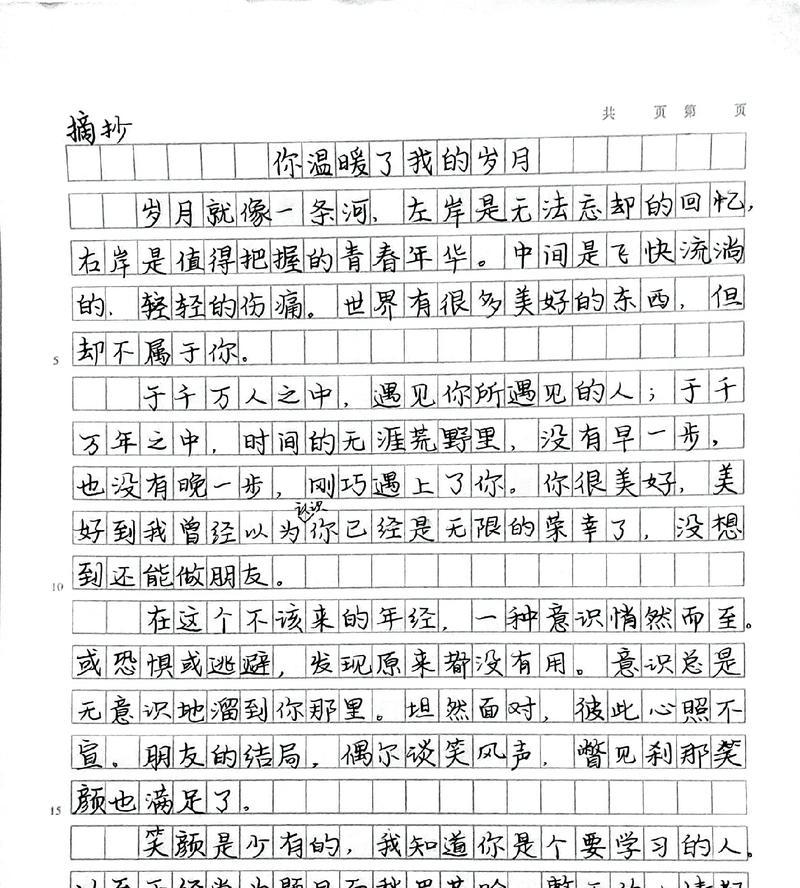 共 页 第 页
摘抄
你温暖了我的岁月
岁月就像一条河，左岸是无法忘却的回忆，
右岸是值得把握的青春年华。中间是飞快流淌
的，轻轻的伤痛。世界有很多美好的东西，但
5 却不属于你。
于千万人之中，遇见你所遇见的人；于千
万年之中，时间的无涯荒野里，没有早一步，
也没有晚一步，刚巧遇上了你。你很美好，美
好到我曾经以为认识你已经是无限的荣幸了，没想
10 到还能做朋友。
在这个不该来的年经，一种意识悄然而至。
或恐惧或逃避，发现原来都没有用。意识总是
无意识地溜到你那里。坦然面对，彼此心照不
宣。朋友的结局，偶尔谈笑风声，瞥见刹那笑
15 颜也满足了。
笑颜是少有的，我知道你是个要学习的人。